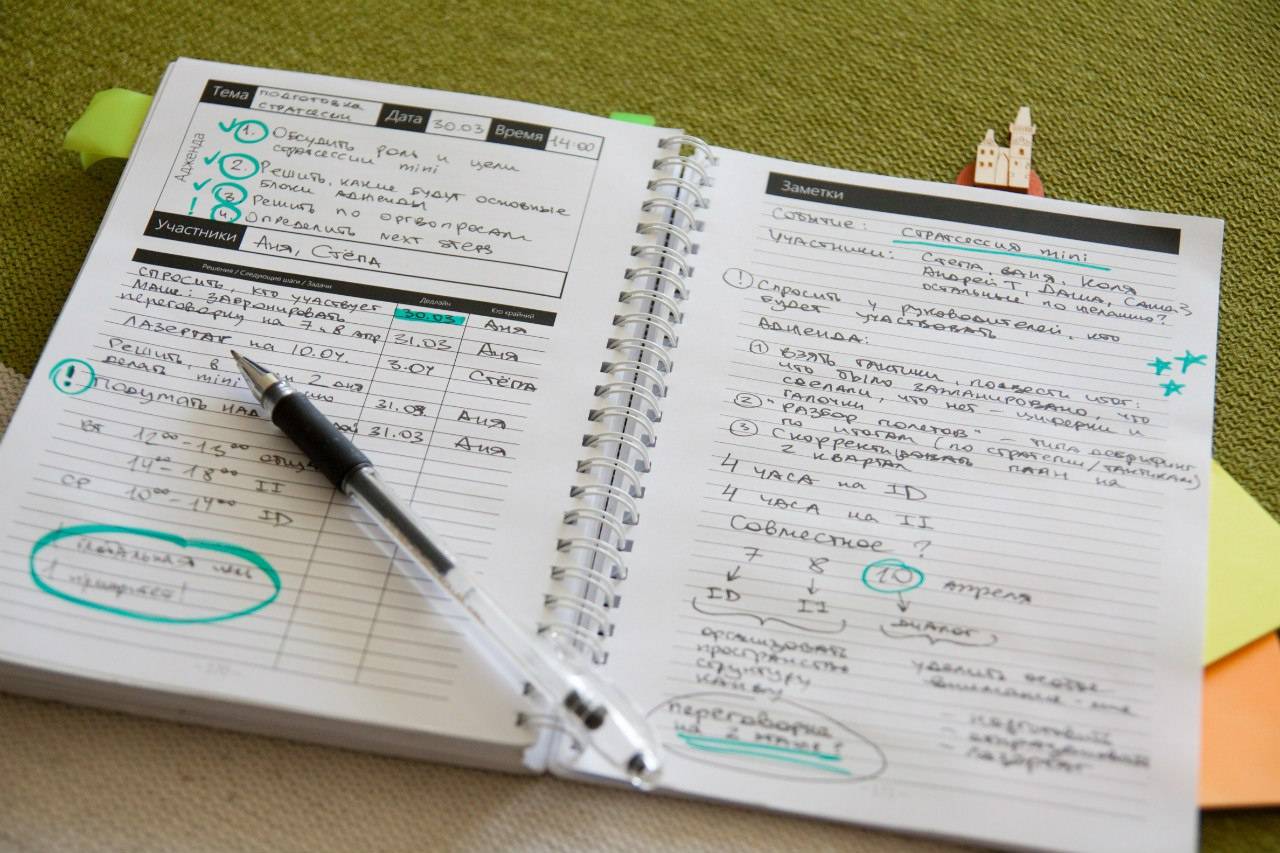 Тема
подготовка
стратсессии
Дата
30.03
Время
14:00
Адженда
1. Обсудить роль и цели
стратсессии mini
2. Решить, какие будут основные
блоки адженды
3 Решить по оргвопросам
4. Определить next steps
Участники
Аня, Стёпа
Решения / Следующие шаги / Задачи
Дедлайн
Кто крайний
спросить, кто участвует
30.03
Аня
Маше: забронировать
переговорку на 7, 8 апр
31.03
Аня
Лазертаг на 10.04
3.04
Стёпа
Решить, в
делать mini 2 дня
31.03
Аня
! Подумать над
31.03
Аня
вт 12⁰⁰-13⁰⁰
14⁰⁰-18⁰⁰ II
ср 10⁰⁰-14⁰⁰ ID
Заметки
Событие: стратсессия mini
Участники: Стёпа, Ваня, Коля
Андрей Т, Даша, Саша?
остальные по желанию?
! Спросить у руководителей, кто
будет участвовать
Адженда:
1 взять тактики, подвести итог:
что было запланировано, что
сделали, что нет – циферки и
галочки
2 "Разбор полетов" – типа дебрифинг
по итогам (по стратегии/тактикам)
3 Скорректировать план на
2 квартал
4 часа на ID
4 часа на II
Совместное?
7 8 10 апреля
ID II диалог
организовать
пространство
структуру
канву
уделить особое
внимание
переговорка
на 2 этаже?